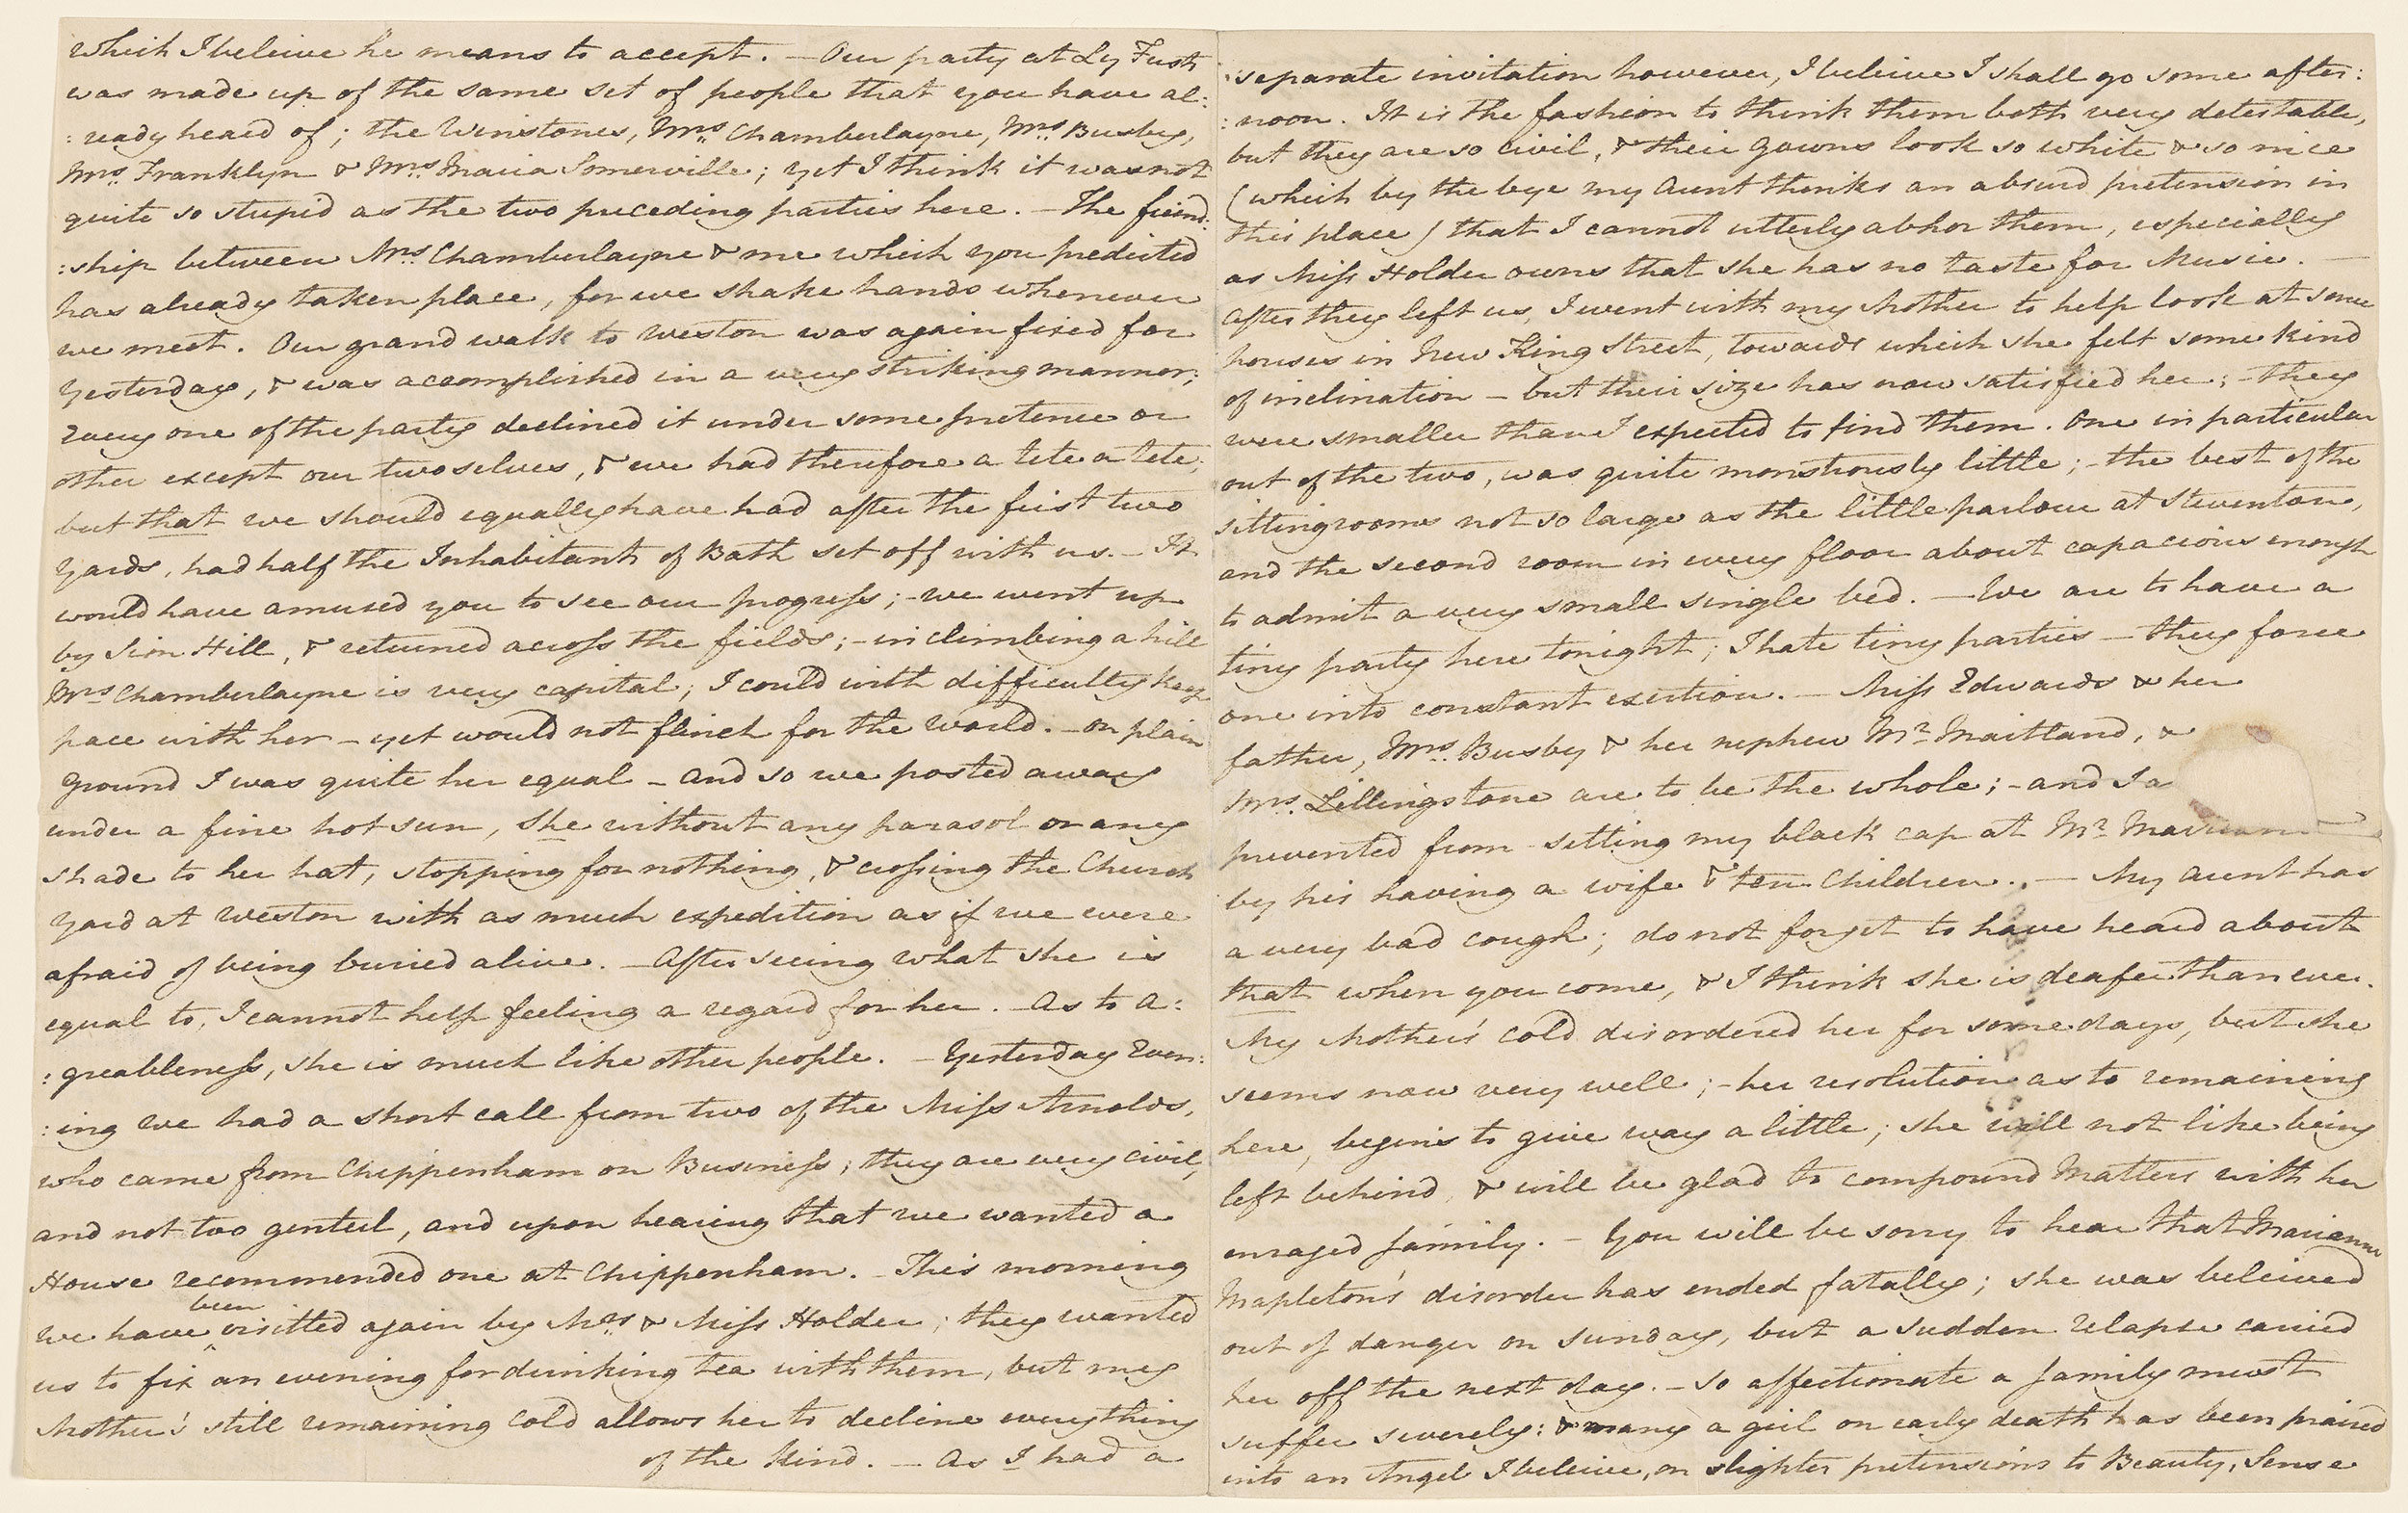 which I beleive he means to accept. — Our party at Ly Fust's
was made up of the same set of people that you have al:
:ready heard of; the Winstones, Mrs Chamberlayne, Mrs Busby,
Mrs Franklyn & Mrs Maria Somerville; yet I think it was not
quite so stupid as the two preceding parties here. — The friend:
:ship between Mrs Chamberlayne & me which you predicted
has already taken place, for we shake hands whenever
we meet. Our grand walk to Weston was again fixed for
Yesterday, & was accomplished in a very striking manner;
Every one of the party declined it under some pretence or
other except our two selves, & we had therefore a tete a tete;
but that we should equally have had after the first two
yards, had half the Inhabitants of Bath set off with us. — It
would have amused you to see our progress; — we went up
by Sion Hill, & returned across the fields; — in climbing a hill
Mrs Chamberlayne is very capital; I could with difficulty keep
pace with her — yet would not flinch for the World. — on plain
ground I was quite her equal — and so we posted away
under a fine hot sun, She without any parasol or any
shade to her hat, stopping for nothing, & crossing the Church
Yard at Weston with as much expedition as if we were
afraid of being buried alive. — After seeing what she is
equal to, I cannot help feeling a regard for her. — As to A:
:greableness, she is much like other people. — Yesterday Even:
:ing we had a short call from two of the Miss Arnolds,
who came from Chippenham on Business; they are very civil,
and not too genteel, and upon hearing that we wanted a
House recommended one at Chippenham. — This morning
we have been visitted again by Mrs & Miss Holder; they wanted
us to fix an evening for drinking tea with them, but my
Mother's still remaining cold allows her to decline everything
of the kind. — As I had a
separate invitation however, I beleive I shall go some after:
:noon. It is the fashion to think them both very detestable,
but they are so civil, & their gowns look so white & so nice
(which by the bye my Aunt thinks an absurd pretension in
this place) that I cannot utterly abhor them, especially
as Miss Holder owns that she has no taste for Music. —
After they left us, I went with my Mother to help look at some
houses in New King Street, towards which she felt some kind
of inclination — but their size has now satisfied her; — they
were smaller than I expected to find them. One in particular
out of the two, was quite monstrously little; — the best of the
sittingrooms not so large as the little parlour at Steventon,
and the second room in every floor about capacious enough
to admit a very small single bed. — We are to have a
tiny party here tonight; I hate tiny parties — they force
one into constant exertion. — Miss Edwards & her
father, Mrs Busby & her nephew Mr Maitland, &
Mrs Lillingstone are to be the whole; — and I a
prevented from setting my black cap at Mr Mai
by his having a wife & ten Children. — My Aunt has
a very bad cough; do not forget to have heard about
that when you come, & I think she is deafer than ever.
My Mother's cold disordered her for some days, but she
seems now very well; — her resolution as to remaining
here, begins to give way a little; she will not like being
left behind, & will be glad to compound Matters with her
enraged family. — You will be sorry to hear that Marianne
Mapleton's disorder has ended fatally; she was beleived
out of danger on Sunday, but a sudden relapse carried
her off the next day. — So affectionate a family must
suffer severely: & many a girl on early death has been praised
into an Angel I beleive, on slighter pretensions to Beauty, Sense